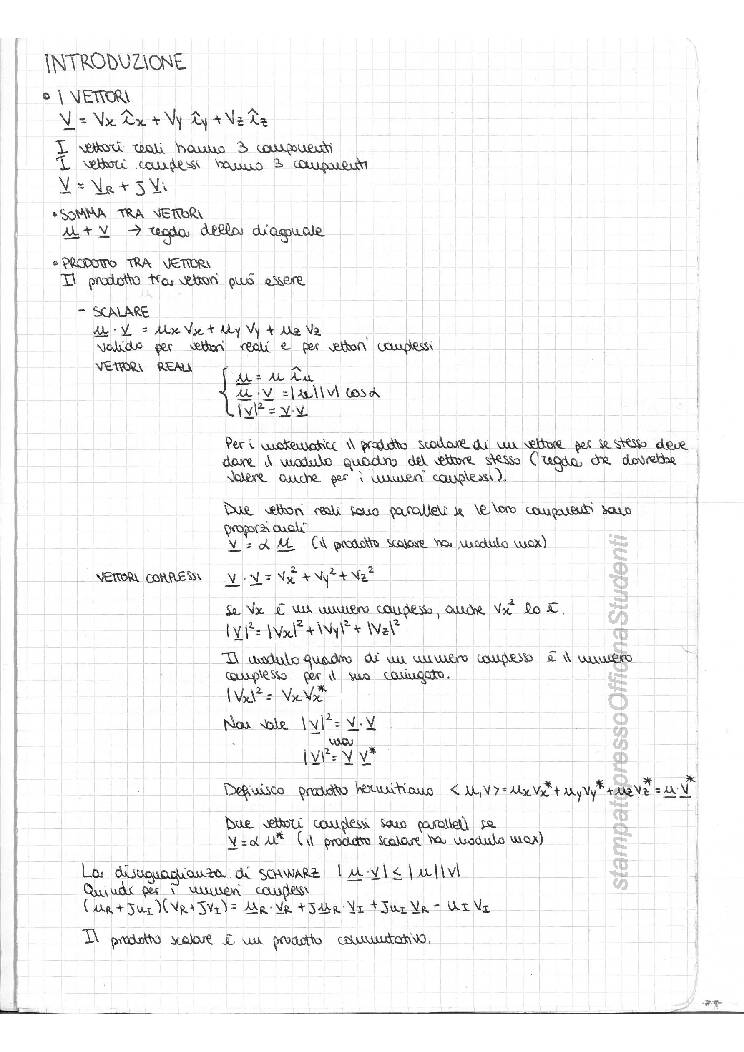 INTRODUZIONE
• I VETTORI
V = Vx îx + Vy îy + Vz îz
I vettori reali hanno 3 componenti
I vettori complessi hanno 3 componenti
V = VR + j Vi
• SOMMA TRA VETTORI
u + v → regola della diagonale
• PRODOTTO TRA VETTORI
Il prodotto tra vettori può essere
- SCALARE
u · v = ux vx + uy vy + uz vz
valido per vettori reali e per vettori complessi
VETTORI REALI
u = u îu
u · v = |u||v| cos α
|v|² = v · v
Per i matematici il prodotto scalare di un vettore per se stesso deve
dare il modulo quadro del vettore stesso (regola che dovrebbe
valere anche per i numeri complessi).
Due vettori reali sono paralleli se le loro componenti sono
proporzionali
v = α u (il prodotto scalare ha modulo max)
VETTORI COMPLESSI v · v = vx² + vy² + vz²
Se Vx è un numero complesso, anche Vx² lo è.
|v|² = |Vx|² + |Vy|² + |Vz|²
Il modulo quadro di un numero complesso è il numero
complesso per il suo coniugato.
|Vx|² = Vx Vx*
Non vale |v|² = v · v
ma
|v|² = v v*
Definisco prodotto hermitiano <u,v> = ux vx* + uy vy* + uz vz* = u · v*
Due vettori complessi sono paralleli se
v = α u* (il prodotto scalare ha modulo max)
La disuguaglianza di SCHWARZ |u · v| ≤ |u||v|
Quindi per i numeri complessi
(uR + juI)(vR + jvI) = uR · vR + juR · vI + juI vR - uI vI
Il prodotto scalare è un prodotto commutativo.
stampatopressoOfficinaStudenti